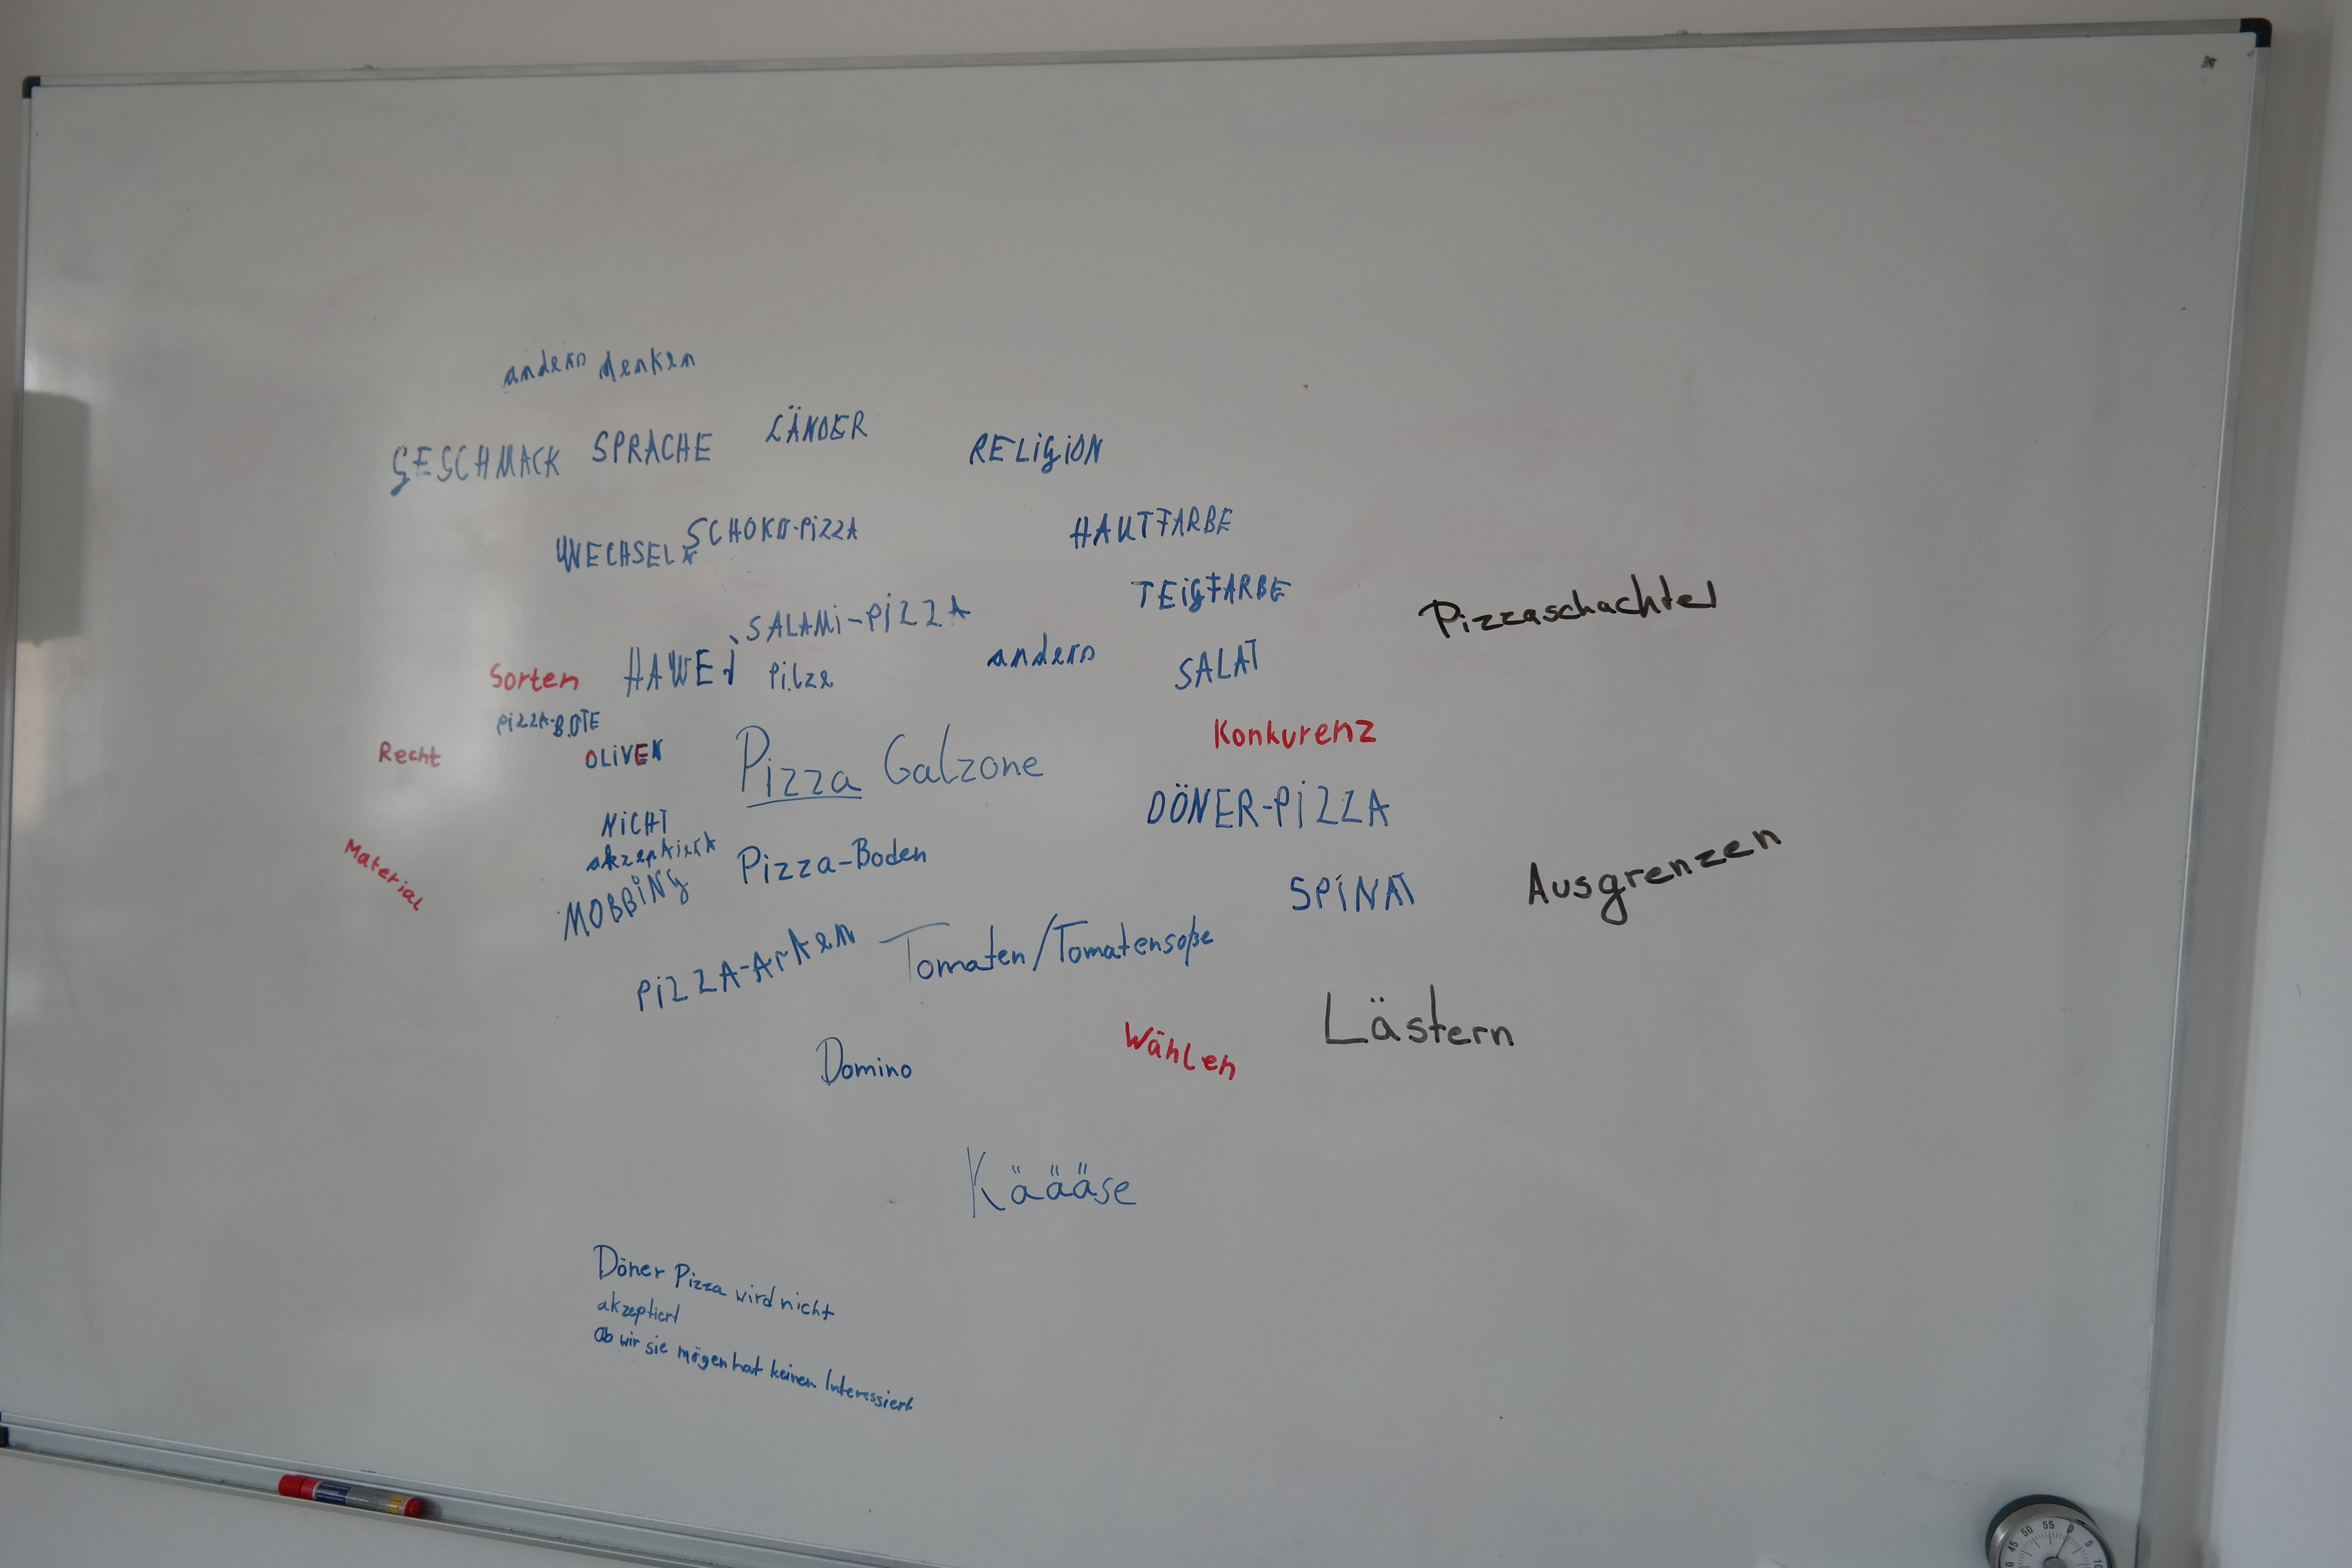 anders denken
GESCHMACK SPRACHE LÄNDER RELIGION
WECHSELN SCHOKO-PIZZA HAUTFARBE
TEIGFARBE
Pizzaschachtel
SALAMI-PIZZA
Sorten HAWEI Pilze anders SALAT
PIZZA-BOTE
Recht OLIVEN Pizza Calzone Konkurenz
DÖNER-PIZZA
NICHT
akzeptiert Pizza-Boden
Material MOBBING SPINAT Ausgrenzen
PIZZA-ArtEN Tomaten/Tomatensoße
Lästern
Domino Wählen
Käääse
Döner Pizza wird nicht
akzeptiert
Ob wir sie mögen hat keinen Interessiert
45 50 55 0 5 10